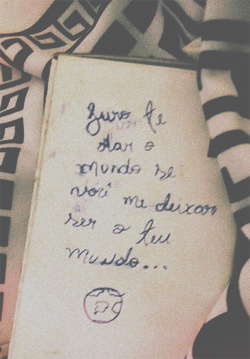 Juro te
dar o
mundo se
você me deixar
ser o teu
mundo...